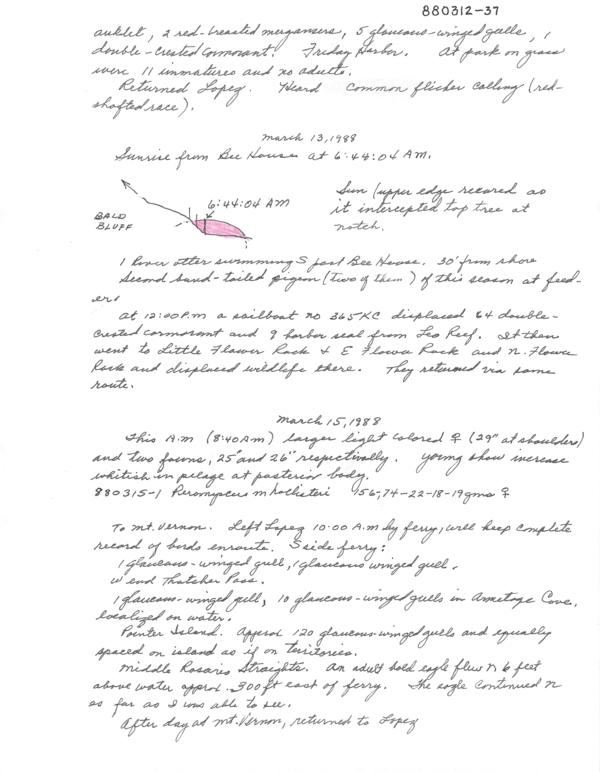 880312-37
auklet, 2 red-breasted mergansers, 5 glaucous-winged gulls, 1
double-crested cormorant. Friday Harbor. At park on grass
were 11 immatures and no adults.
Returned Lopez. Heard common flicker calling (red-
shafted race).
March 13, 1988
Sunrise from Bee House at 6:44:04 AM.
6:44:04 AM
BALD
BLUFF
Sun (upper edge record as
it intercepted top tree at
notch.
1 River otter swimming S past Bee House. 30' from shore
Second band-tailed pigeon (two of them) of this season at feed-
er!
At 12:00 P.m a sailboat no 365KC displaced 64 double-
crested cormorant and 9 harbor seal from Leo Reef. It then
went to Little Flower Rock & E Flower Rock and N. Flower
Rock and displaced wildlife there. They returned via same
route.
March 15, 1988
This A.M (8:40 Am) larger light colored ♀ (29" at shoulders)
and two fawns, 25" and 26" respectivally. Young show increase
whitish in pelage at posterior body.
880315-1 Peromyscus m hollisteri 156-74-22-18-19gms ♀
To Mt. Vernon. Left Lopez 10:00 A.M by ferry, will keep complete
record of birds enroute. S side ferry:
1 glaucous-winged gull, 1 glaucous winged gull.
W end Thatcher Pass.
1 glaucous-winged gull, 10 glaucous-winged gulls in Armitage Cove,
localized on water.
Pointer Island. Approx 120 glaucous-winged gulls and equally
spaced on island as if on territories.
Middle Rosario Straights. An adult bald eagle flew N 6 feet
above water approx. 300 ft east of ferry. The eagle continued N
as far as I was able to see.
After day at Mt. Vernon, returned to Lopez